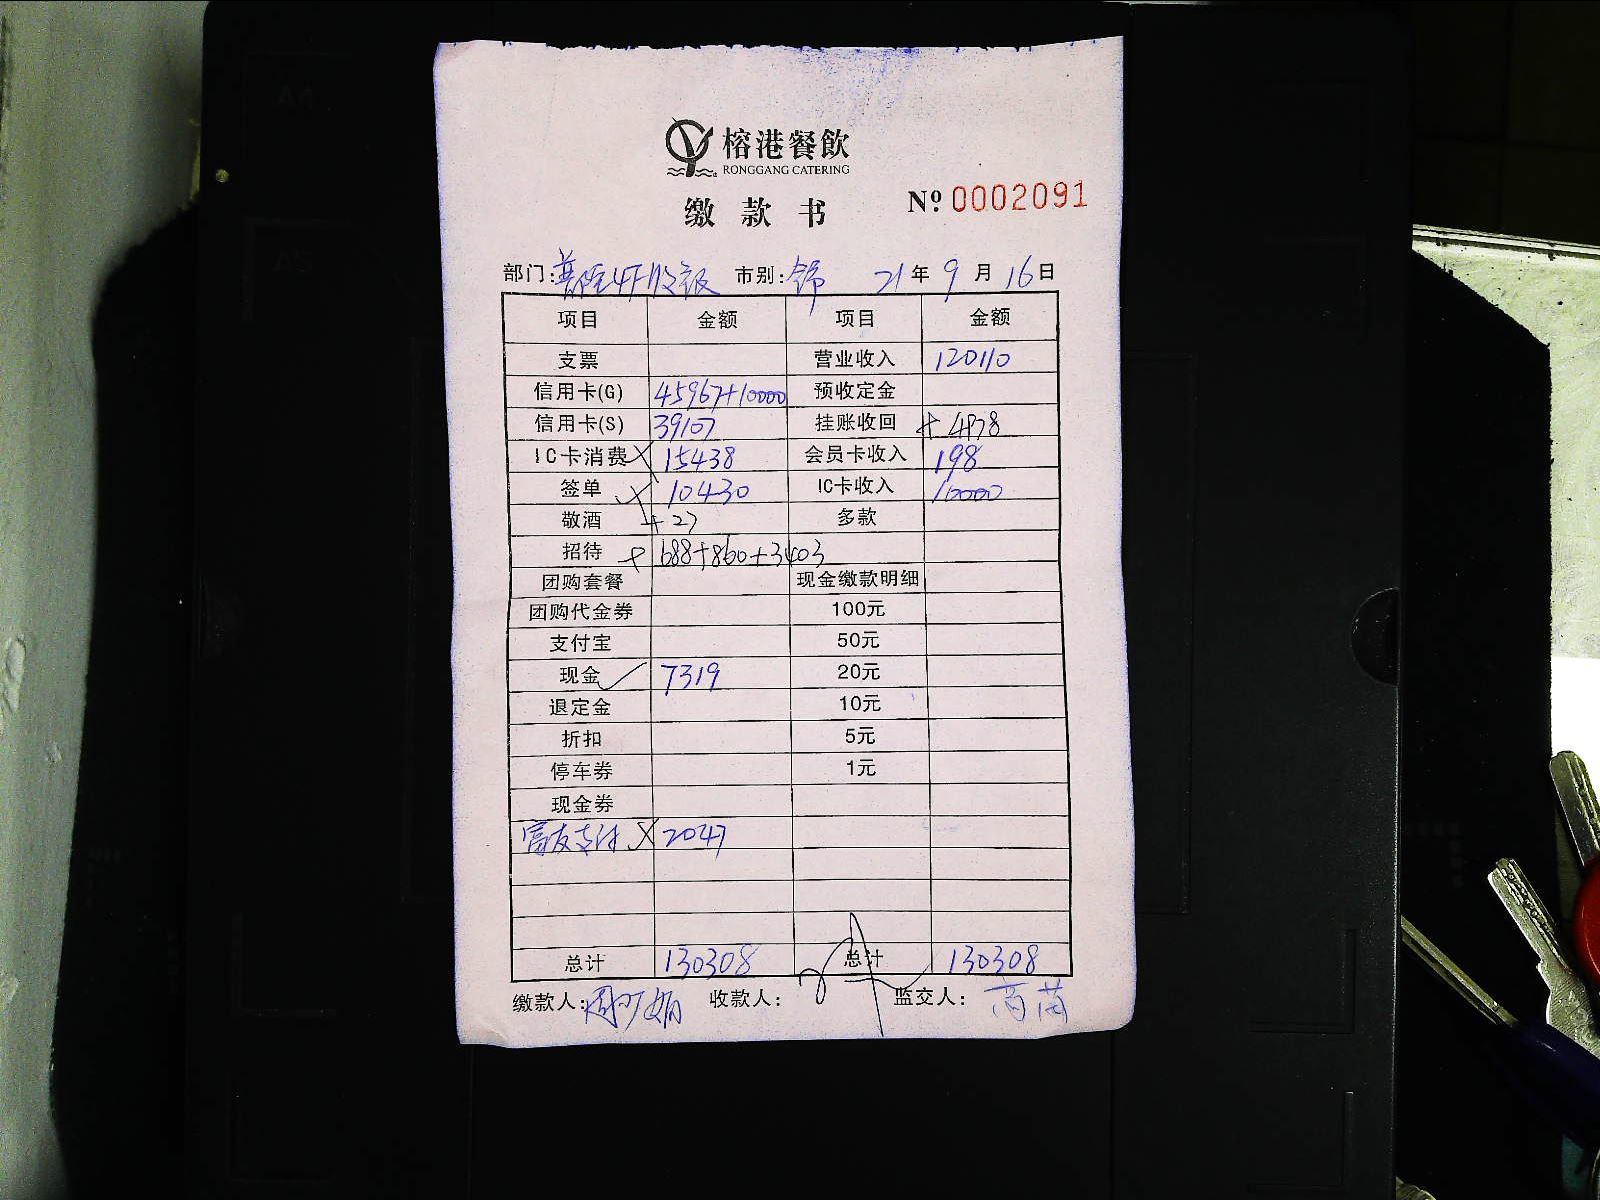 榕港餐飲
RONGGANG CATERING
缴款书 Nº 0002091
部门: 4F收银 市别: 21年9月16日
项目 金额 项目 金额
支票 营业收入 120110
信用卡(G) 45967+10000 预收定金
信用卡(S) 39107 挂账收回 + 4878
IC卡消费 15438 会员卡收入 198
签单 10430 IC卡收入 10000
敬酒 + 27 多款
招待 + 688+860+3403
团购套餐 现金缴款明细
团购代金券 100元
支付宝 50元
现金✓ 7319 20元
退定金 10元
折扣 5元
停车券 1元
现金券
富友支付 X 2047
总计 130308 总计 130308
缴款人: 收款人: 监交人: